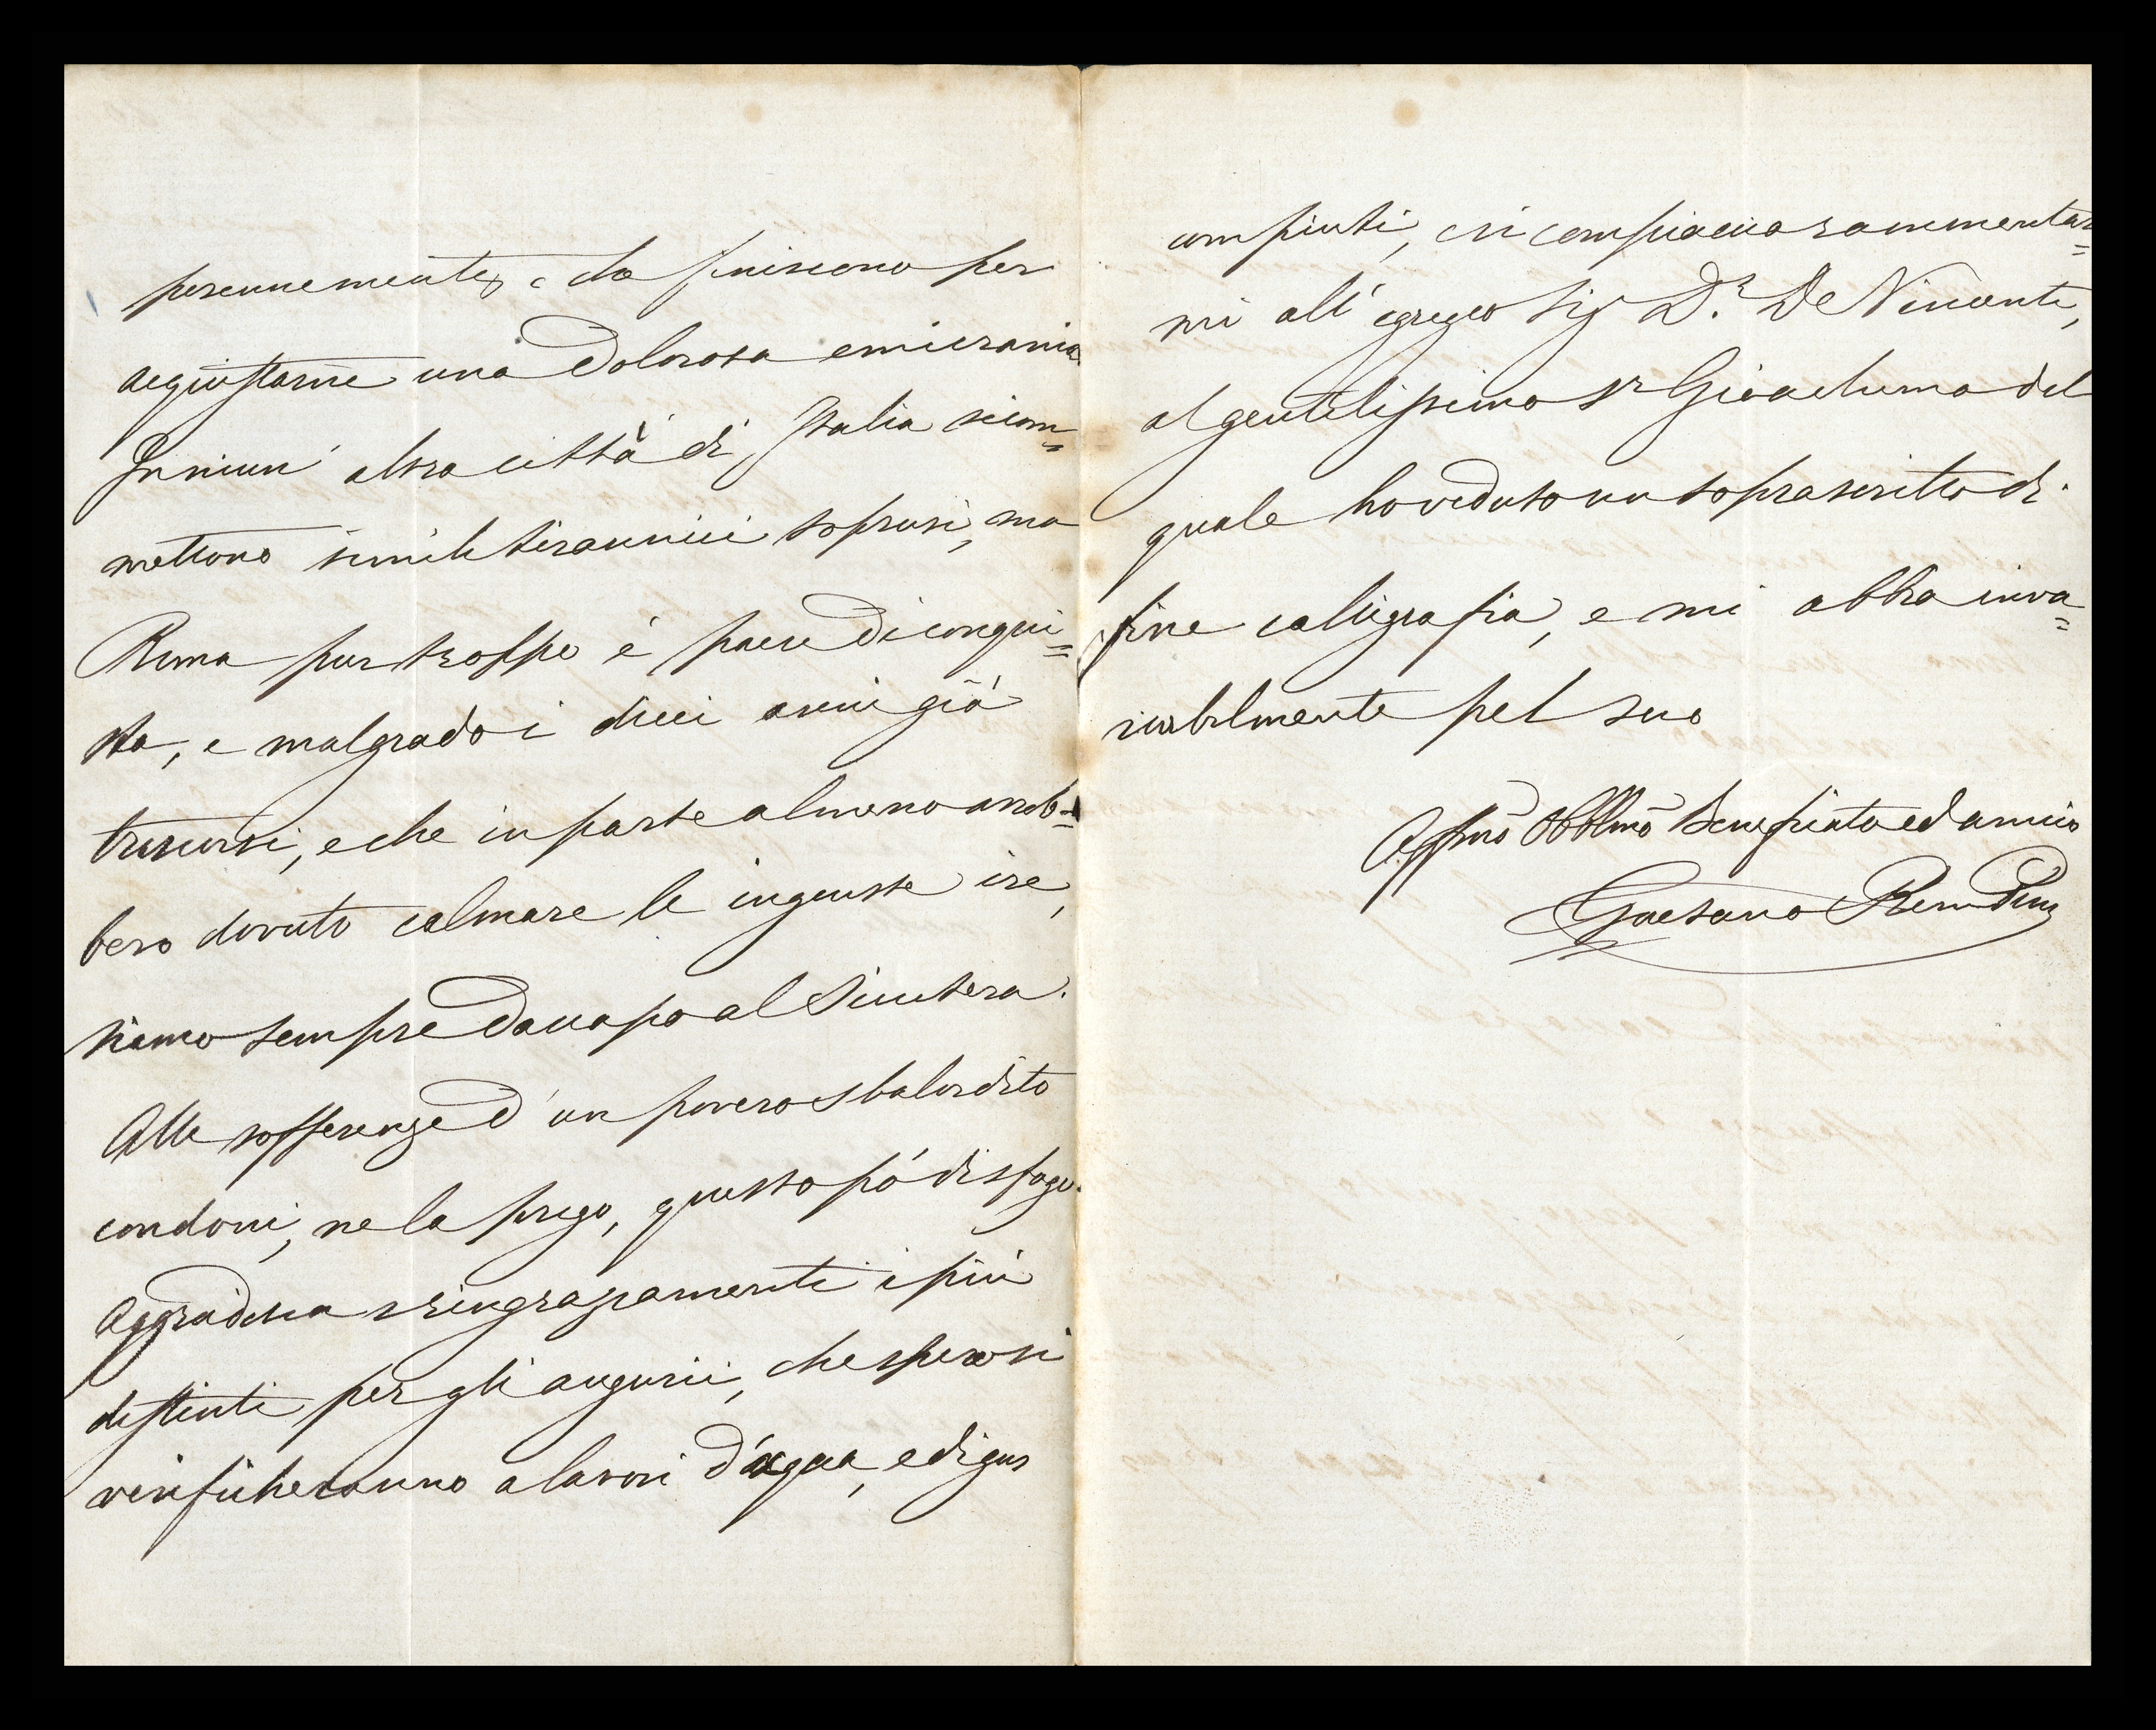 perennemente, e che finiscono per
acquistarne una dolorosa emicrania.
In niun' altra città di Italia si com=
mettono simili tirannici soprusi, ma
Roma pur troppo è paese di conqui=
sta, e malgrado i dieci anni già
trascorsi, e che in parte almeno avreb=
bero dovuto calmare le ingiuste ire,
siamo sempre daccapo al Sicutera.
Alle sofferenze d' un povero sbalordito
condoni, ne la prego, questo pó di sfogo.
Aggradisca i ringraziamenti i più
distinti per gli augurii, che spero si
verificheranno a lavori d'acqua, e di gus
compiuti, si compiaccia rammentar=
mi all' egregio Sig D.r De Vincenti,
al gentilissimo Sr Gioachimo del
quale ho veduto un soprascritto di
fine calligrafia, e mi abbia inva=
riabilmente pel suo
Affmo Obblmo Beneficato ed amico
Gaetano